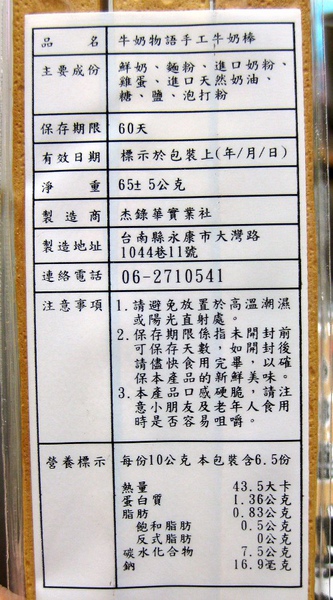 品名 牛奶物語手工牛奶棒
主要成份 鮮奶、麵粉、進口奶粉、
雞蛋、進口天然奶油、
糖、鹽、泡打粉
保存期限 60天
有效日期 標示於包裝上(年/月/日)
淨重 65± 5公克
製造商 杰錄華實業社
製造地址 台南縣永康市大灣路
1044巷11號
連絡電話 06-2710541
注意事項 1.請避免放置於高溫潮濕
或陽光直射處。
2.保存期限係指未開封前
可保存天數，如開封後
請儘快食用完畢，以確
保本產品的新鮮美味。
3.本產品口感硬脆，請注
意小朋友及老年人食用
時是否容易咀嚼。
營養標示 每份10公克 本包裝含6.5份
熱量 43.5大卡
蛋白質 1.36公克
脂肪 0.83公克
飽和脂肪 0.5公克
反式脂肪 0公克
碳水化合物 7.5公克
鈉 16.9毫克